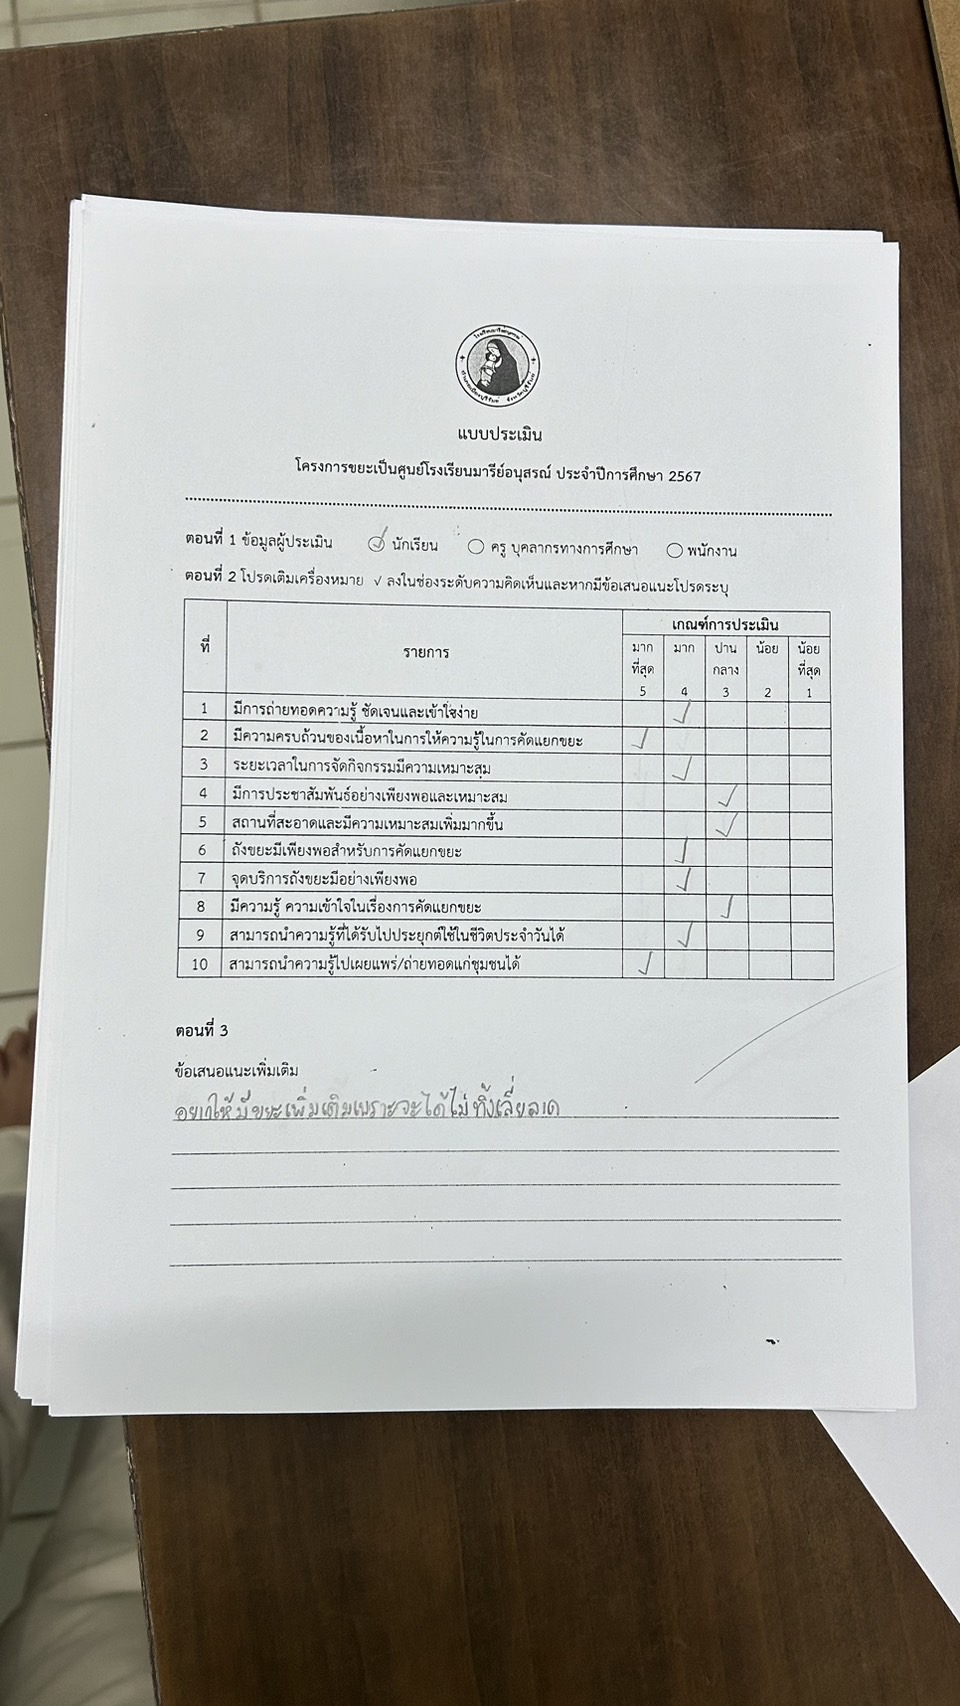 แบบประเมิน
โครงการขยะเป็นศูนย์โรงเรียนมารีย์อนุสรณ์ ประจำปีการศึกษา 2567
ตอนที่ 1 ข้อมูลผู้ประเมิน ✓ นักเรียน ○ ครู บุคลากรทางการศึกษา ○ พนักงาน
ตอนที่ 2 โปรดเติมเครื่องหมาย √ ลงในช่องระดับความคิดเห็นและหากมีข้อเสนอแนะโปรดระบุ
ที่ รายการ เกณฑ์การประเมิน
มากที่สุด 5 มาก 4 ปานกลาง 3 น้อย 2 น้อยที่สุด 1
1 มีการถ่ายทอดความรู้ ชัดเจนและเข้าใจง่าย ✓
2 มีความครบถ้วนของเนื้อหาในการให้ความรู้ในการคัดแยกขยะ ✓
3 ระยะเวลาในการจัดกิจกรรมมีความเหมาะสม ✓
4 มีการประชาสัมพันธ์อย่างเพียงพอและเหมาะสม ✓
5 สถานที่สะอาดและมีความเหมาะสมเพิ่มมากขึ้น ✓
6 ถังขยะมีเพียงพอสำหรับการคัดแยกขยะ ✓
7 จุดบริการถังขยะมีอย่างเพียงพอ ✓
8 มีความรู้ ความเข้าใจในเรื่องการคัดแยกขยะ ✓
9 สามารถนำความรู้ที่ได้รับไปประยุกต์ใช้ในชีวิตประจำวันได้ ✓
10 สามารถนำความรู้ไปเผยแพร่/ถ่ายทอดแก่ชุมชนได้ ✓
ตอนที่ 3
ข้อเสนอแนะเพิ่มเติม
อยาให้มีขยะเพิ่มเติมเพราะจะได้ไม่ทิ้งเลี่ยลาด